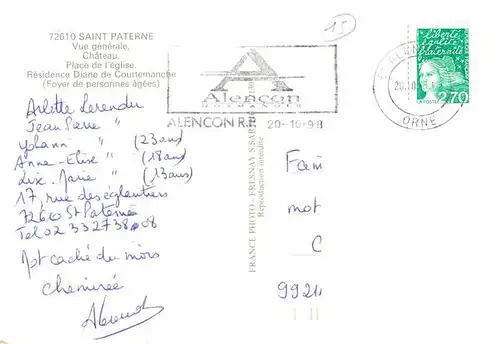 72610 SAINT PATERNE
Vue générale,
Château,
Place de l'église.
Résidence Diane de Courtemanche
(Foyer de personnes âgées)
15
liberté
égalité
fraternité
LA POSTE
2,70
A
Alençon
ALENCON R.P. 20-10-98
ORNE
Arlette
Jean Pierre "
Yohann " (23 ans)
Anne-Elise " (18 ans)
Lise-Marie " (13 ans)
17, rue des églantiers
72610 St Paterne
Tel 02 332738 08
Mot caché du mois
cheminée
FRANCE PHOTO - FRESNAY S/SARTHE
Reproduction interdite
Fam
mot
C
992